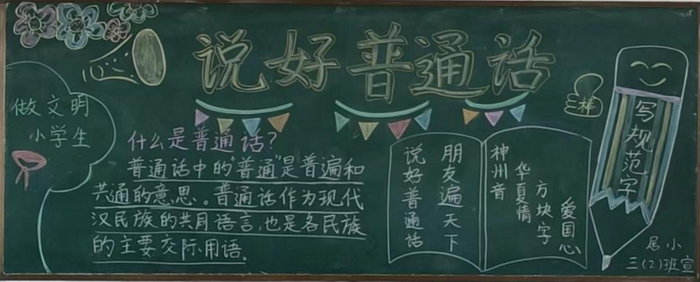 说好普通话
做文明
小学生
什么是普通话?
普通话中的“普通”是普遍和
共通的意思。普通话作为现代
汉民族的共同语言,也是各民族
的主要交际用语.
说好普通话
朋友遍天下
神州音
华夏情
方块字
爱国心
写规范字
三(2)班宣